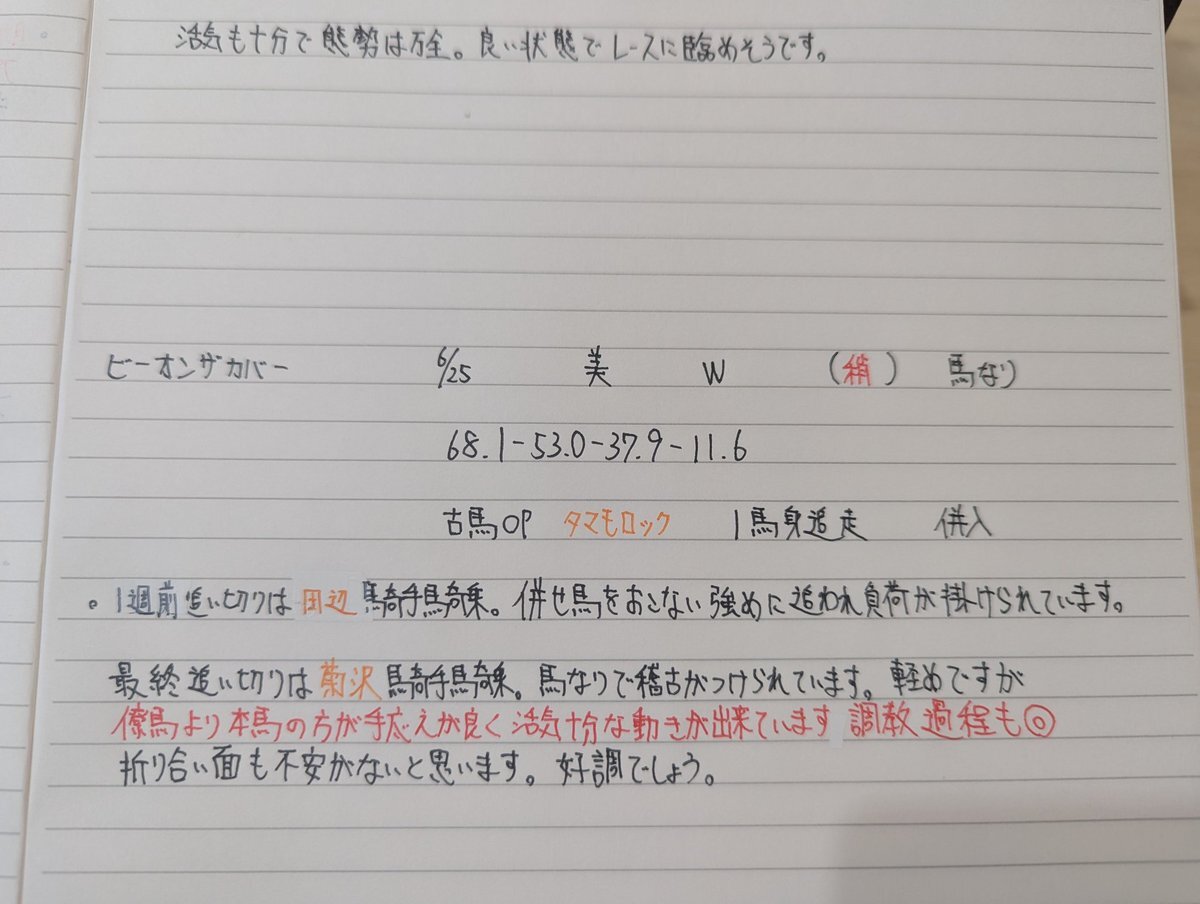 活気も十分で態勢は万全。良い状態でレースに臨めそうです。
ビーオンザカバー 6/25 美 W (稍) 馬なり
68.1-53.0-37.9-11.6
古馬OP タマモロック 1馬身追走 併入
。1週前追い切りは田辺騎手騎乗。併せ馬をおこない強めに追われ負荷が掛けられています。
最終追い切りは菊沢騎手騎乗。馬なりで稽古がつけられています。軽めですが
僚馬より本馬の方が手応えが良く活気十分な動きが出来ています 調教過程も◎
折り合い面も不安がないと思います。好調でしょう。